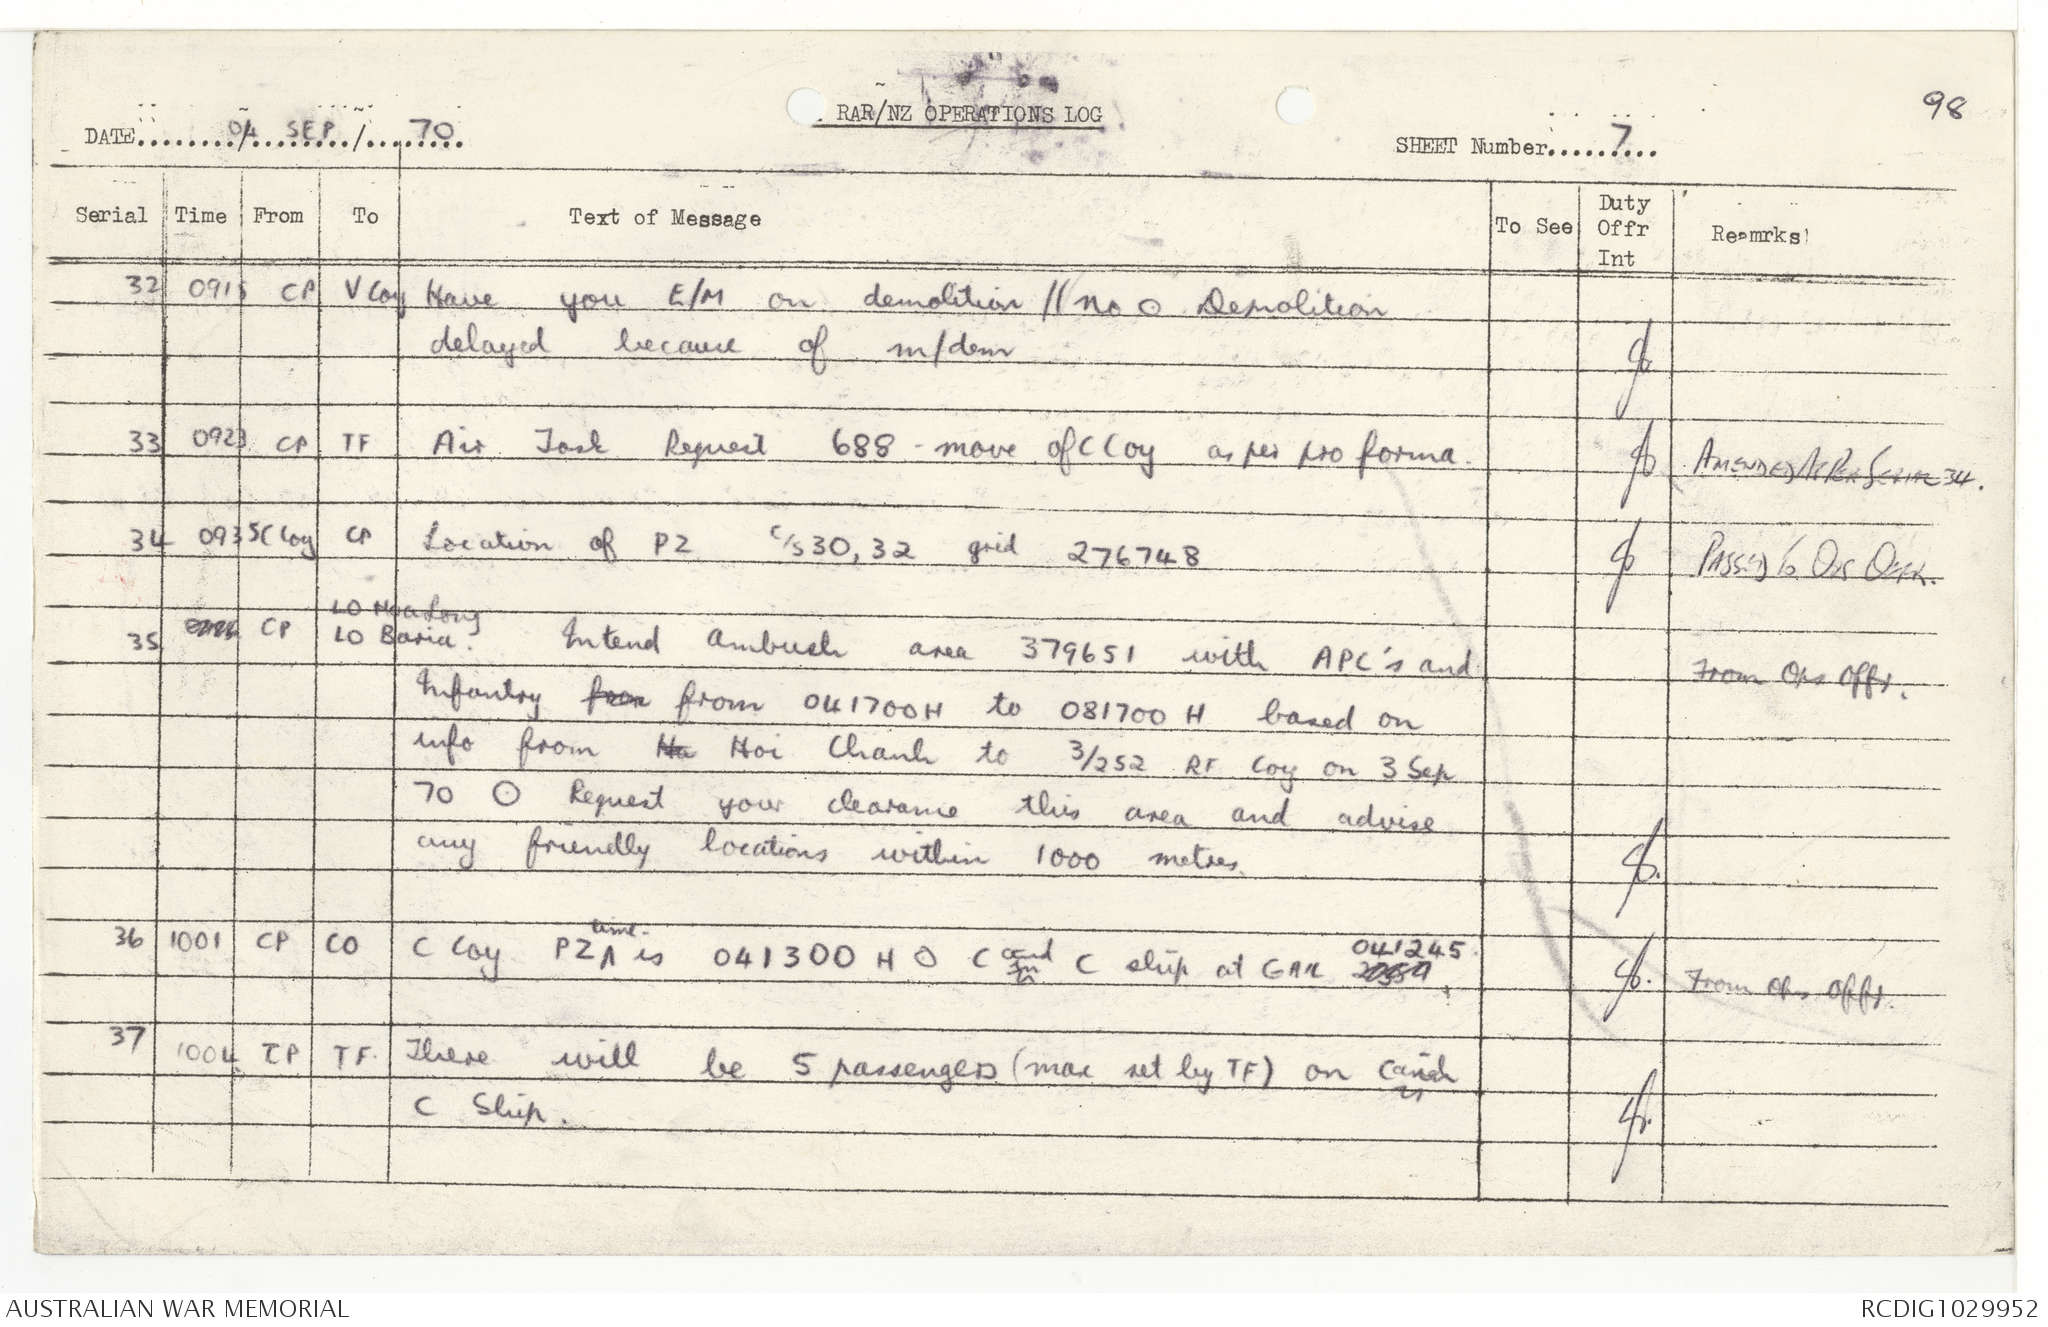 98
RAR/NZ OPERATIONS LOG
DATE 04 SEP / 70
SHEET Number 7
Serial Time From To Text of Message To See Duty Offr Int Reamrks
32 0915 CP V Coy Have you E/M on demolition // no O Demolition
delayed because of m/dem
33 0923 CP TF Air Task Request 688 - move of C Coy as per pro forma. AMENDED AS PER SERIAL 34.
34 0935 C Coy CP Location of PZ C/S 30, 32 grid 276748 PASSED TO OPS OFFR.
35 CP LO Hoa Long
LO Baria. Intend ambush area 379651 with APC's and From Ops Offr.
Infantry from from 041700H to 081700H based on
info from Ho Hoi Chanh to 3/252 RF Coy on 3 Sep
70 O Request your clearance this area and advise
any friendly locations within 1000 metres.
36 1001 CP CO C Coy PZ time is 041300H O C and C ship at GAR 041245. From Ops Offr.
37 1004 CP TF. There will be 5 passengers (max set by TF) on C and
C Ship.
AUSTRALIAN WAR MEMORIAL
RCDIG1029952